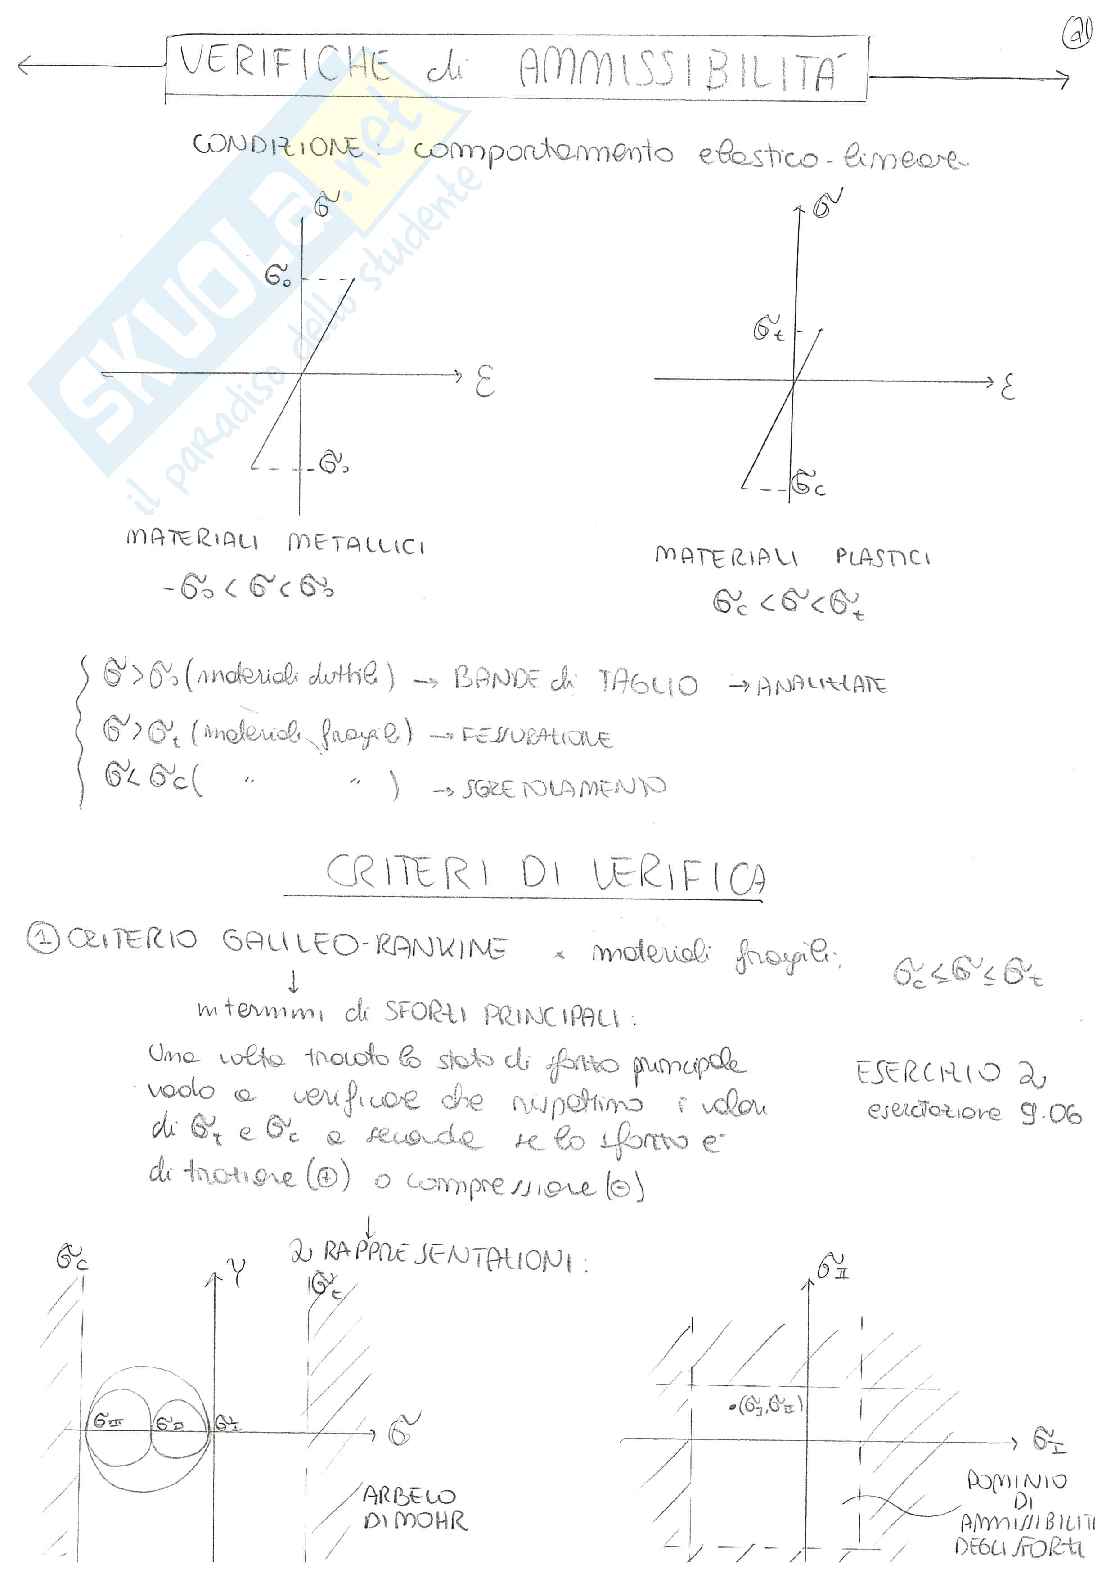 21
VERIFICHE di AMMISSIBILITÀ
CONDIZIONE: comportamento elastico-lineare
σ
σ₀
ε
-σ₀
σ
σt
ε
σc
MATERIALI METALLICI
-σ₀ < σ < σ₀
MATERIALI PLASTICI
σc < σ < σt
σ > σ₀ (materiali duttili) → BANDE di TAGLIO → ANALIZZATE
σ > σt (materiali fragili) → FESSURAZIONE
σ < σc ( " " ) → SGRETOLAMENTO
CRITERI DI VERIFICA
① CRITERIO GALILEO-RANKINE × materiali fragili: σc ≤ σ ≤ σt
↓
in termini di SFORZI PRINCIPALI:
Una volta trovato lo stato di sforzo principale
vado a verificare che rispettino i valori
di σt e σc a seconda se lo sforzo è
di trazione (+) o compressione (-)
ESERCIZIO 2
esercitazione 9.06
↓
2 RAPPRESENTAZIONI:
σc
γ
σt
σIII
σII
σI
σ
ARBELO
DI MOHR
σII
•(σI, σII)
σI
DOMINIO
DI
AMMISSIBILIT
DEGLI SFORZI
SKUOLA.net
il paradiso dello studente